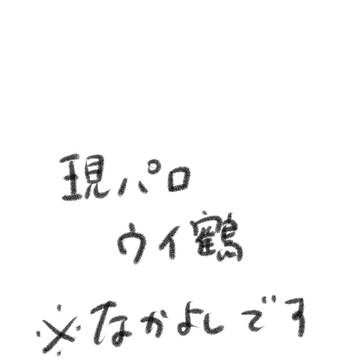 現パロ
ウイ鶴
※なかよしです